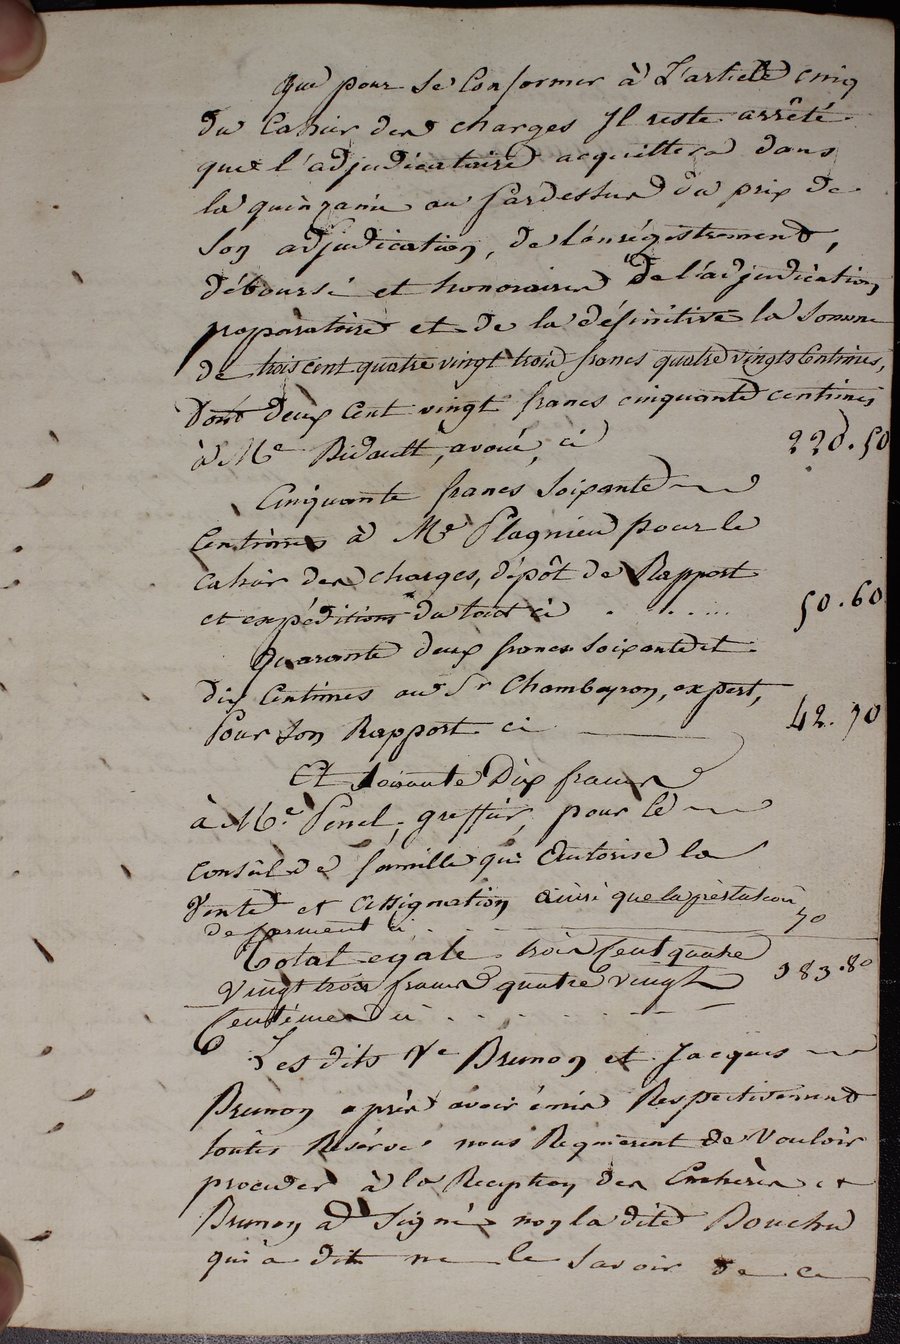 que pour se Conformer à L'article cinq
du Cahier des charges Il reste arrêté
que l'adjudicataire acquittera dans
la quinzaine au pardessus du prix de
Son adjudication, de l'enrégistrement,
déboursé et honoraires de l'adjudication
preparatoire et de la définitive la Somme
de trois cent quatre vingt trois francs quatre vingts Centimes,
dont deux Cent vingt francs cinquante centimes
à Me Bidault, avoué, ci 220.50
Cinquante francs Soixante
Centimes à Me Plagnieu pour le
Cahier des charges, dépôt de Rapport
et expéditions du tout ci . . . . . . 50.60
Quarante deux francs Soixante et
dix Centimes au Sr Chambeyron, expert,
Pour Son Rapport ci 42.70
Et soixante Dix francs
à Me Penel, greffier, pour le
Conseil de famille qui Autorise la
Vente et assignation ainsi que la préstation
de serment ci . . . 70
Total egale trois Cent quatre
Vingt trois francs quatre vingt 383.80
Centimes ci . . . . . .
Les dits Ve Brunon et Jacques
Brunon après avoir émis Respectivement
toutes Réserves nous Requierent de Vouloir
proceder à la Reception des Enchères et
Brunon a Signé non la dite Bouchu
qui a dit ne le Savoir de ce